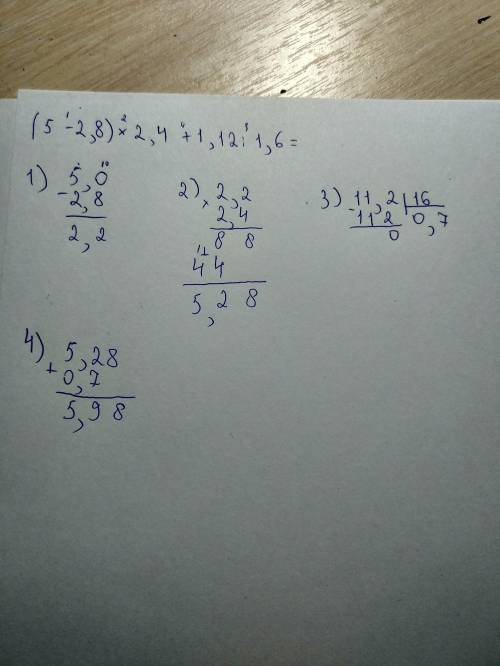 (5 - 2,8) × 2,4 + 1,12 : 1,6 =
1) 5,0
- 2,8
2,2
2) × 2,2
2,4
8 8
+ 4 4
5,2 8
3) - 11,2 | 16
11 2 | 0,7
0
4) + 5,28
0,7
5,9 8